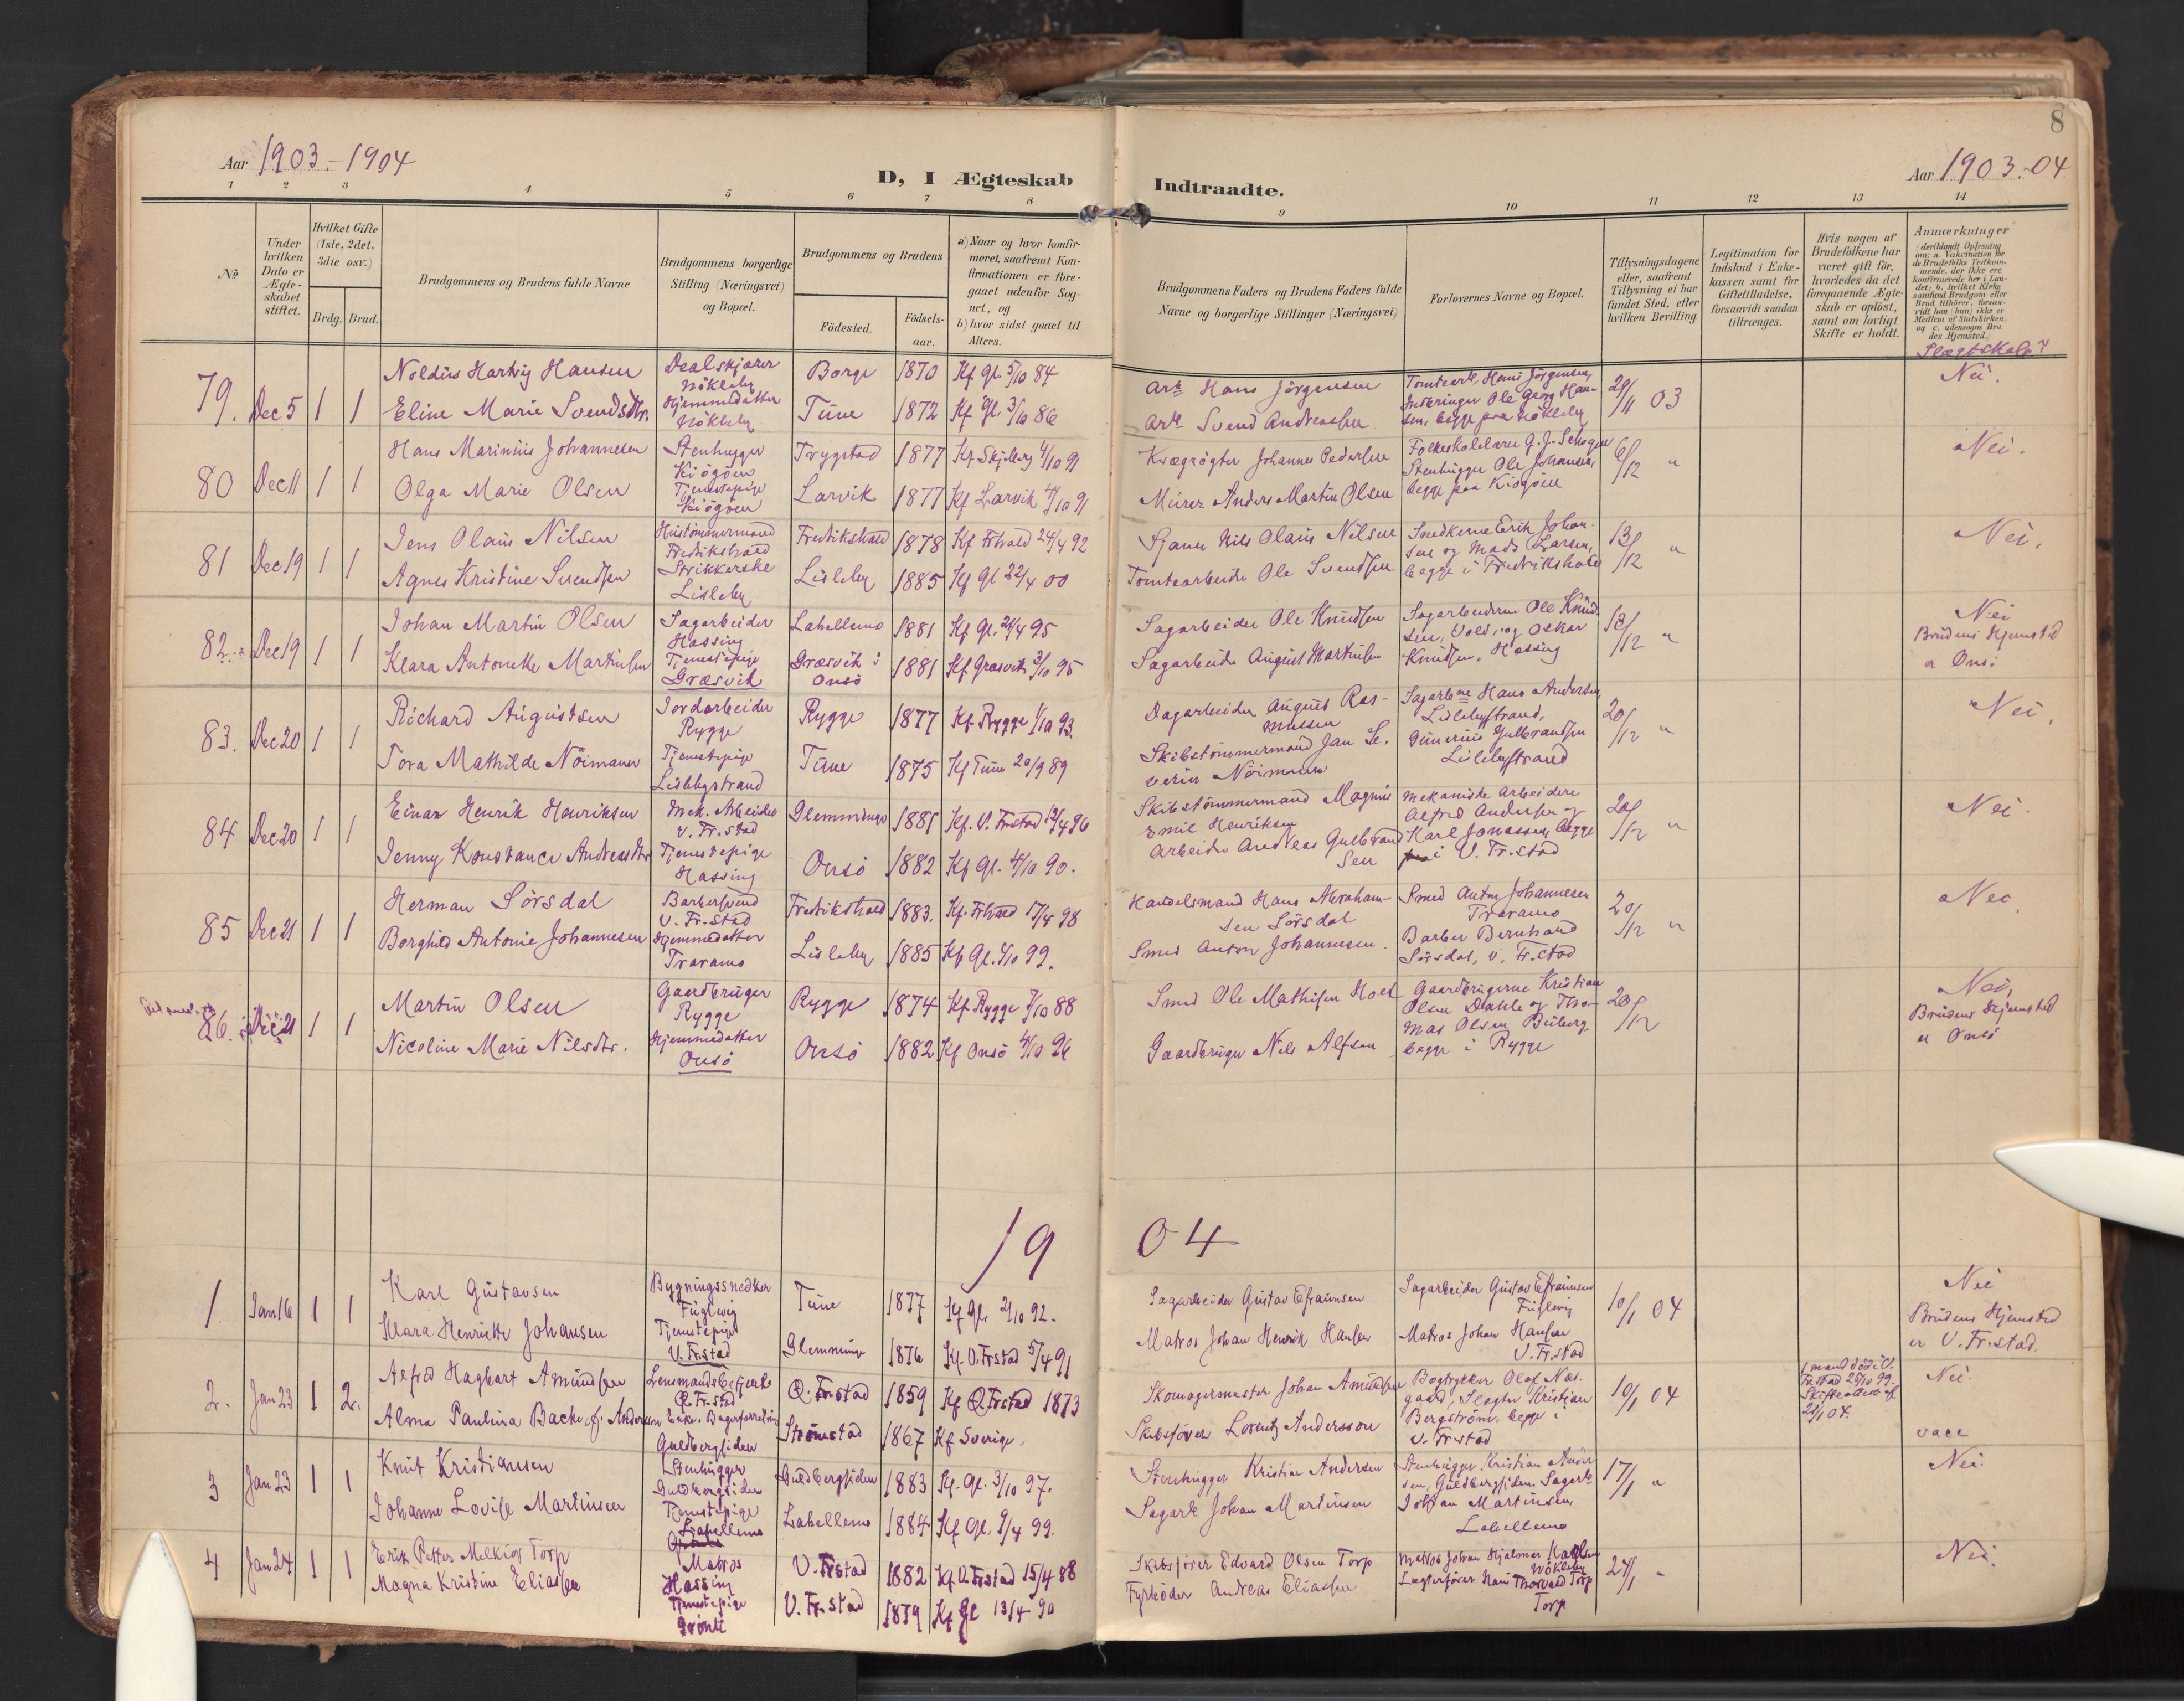 8
Aar 1903.-1904
D, I Ægteskab Indtraadte.
Aar 1903.-04
1 2 3 4 5 6 7 8 9 10 11 12 13 14
№
Under hvilken Dato er Ægteskabet stiftet.
Hvilket Gifte (1ste, 2det, 3die osv.)
Brdg. Brud.
Brudgommens og Brudens fulde Navne
Brudgommens borgerlige Stilling (Næringsvei) og Bopæl.
Brudgommens og Brudens
Fødested.
Fødselsaar.
a) Naar og hvor konfirmeret, saafremt Konfirmationen er foregaaet udenfor Sognet, og
b) hvor sidst gaaet til Alters.
Brudgommens Faders og Brudens Faders fulde Navne og borgerlige Stillinger (Næringsvei)
Forlovernes Navne og Bopæl.
Tillysningsdagene eller, saafremt Tillysning ei har fundet Sted, efter hvilken Bevilling.
Legitimation for Indskud i Enkekassen samt for Giftetilladelse, forsaavidt saadan tiltrænges.
Hvis nogen af Brudefolkene har været gift før, hvorledes da det foregaaende Ægteskab er opløst, samt om lovligt Skifte er holdt.
Anmærkninger (deriblandt Oplysning om: a. Vakcination for de Brudefolks Vedkommende, der ikke ere konfirmerede her i Landet; b. hvilket Kirkesamfund Brudgom eller Brud tilhører, forsaavidt han (hun) ikke er Medlem af Statskirken. og c. udensogns Brudes Hjemsted.)
Slægtskab?
79. Dec 5 1 1
Noldus Hartvig Hansen Nökleby Borge 1870 Kf Gl. 5/10 84
Eline Marie Svendsdtr. Hjemmedatter Nökleby Tune 1872 Kf Gl. 3/10 86
Arb Hans Jörgensen
Arb Svend Andreassen
Tomtearb. Hans Jörgensen, Ole Georg Hansen, begge paa Nökleby
29/11 03
Nei.
80 Dec 11 1 1
Hans Marinius Johannesen Stenhugger Kiögöen Trygstad 1877 Kf. Skjeberg 4/10 91
Olga Marie Olsen Tjenestepige Kiögöen Larvik 1877 Kf Larvik 4/10 91
Kvægrögter Johannes Pedersen
Murer Anders Martin Olsen
Stenhugger Ole Johansen, begge paa Kiögöen
6/12 "
Nei.
81 Dec 19 1 1
Jens Olaus Nilsen Hustömmermand Fredrikshald Fredrikshald 1878 Kf Frhald 24/4 92
Agnes Kristine Svendsen Strikkerske Lisleby Lisleby 1885 Kf Gl 22/4 00
Sjömand Nils Olaus Nilsen
Tomtearbeider Ole Svendsen
Snedkerne Erik Johansen og Mads Larsen, begge i Fredrikshald
13/12 "
Nei.
82. Dec 19 1 1
Johan Martin Olsen Sagarbeider Hassing Labellemo 1881 Kf Gl. 21/4 95
Klara Antonette Martinsen Tjenestepige Græsvik Græsvik i Onsö 1881 Kf Græsvik 3/10 95
Sagarbeider Ole Knudsen
Sagarbeider August Martinsen
Sagarbeiderne Ole Knudsen, Vold, og Oskar Knudsen, Hassing
13/12 "
Nei
Brudens Hjemsted er Onsö
83. Dec 20 1 1
Richard Augustsen Jordarbeider Rygge Rygge 1877 Kf. Rygge 1/10 93.
Tora Mathilde Nöimann Tjenestepige Lislebystrand Tune 1875 Kf Tune 20/9 89
Dagarbeider August Rasmussen
Skibstömmermand Jan Severin Nöimann
Sagarbne Hans Andersen Lislebystrand, Gunerius Gulbrandsen Lislebystrand
20/12 "
Nei.
84 Dec 20 1 1
Einar Henrik Henriksen Mek. Arbeider V. Fr.stad Glemminge 1881 Kf. V. Frstad 12/4 96
Jenny Konstance Andreasdtr Tjenestepige Hassing Onsö 1882 Kf Gl. 4/10 90.
Skibstömmermand Magnus Emil Henriksen
Arbeider Andreas Gulbrandsen
Mekaniske Arbeidere Alfred Andersen og Karl Jonassen, begge i V. Fr.stad
20/12 "
Nei.
85 Dec 21 1 1
Herman Sörsdal Barbersvend V. Fr.stad Fredrikshald 1883. Kf. Frhald 17/4 98
Borghild Antonie Johannesen Hjemmedatter Traramo Lisleby 1885 Kf Gl. 4/10 99.
Handelsmand Hans Abrahamsen Sörsdal
Smed Anton Johannesen.
Smed Anton Johannesen Traramo
Barber Bernhard Sörsdal, V. Fr.stad
20/12 "
Nei
86. Dec 21 1 1
Martin Olsen Gaardbruger Rygge Rygge 1874 Kf Rygge 7/10 88
Nicoline Marie Nilsdtr. Hjemmedatter Onsö Onsö 1882 Kf Onsö 4/10 96
Smed Ole Mathisen Hoel
Gaardbruger Nils Alfsen
Gaardbrugerne Kristian Olsen Dahle og Thomas Olsen Buberg begge i Rygge
20/12
Nei,
Brudens Hjemsted er Onsö
1904
1 Jan 16 1 1
Karl Gustavsen Bygningssnedker Fuglevig Tune 1877 Kf Gl. 2/10 92.
Klara Henriette Johansen Tjenestepige V. Fr.stad Glemminge 1876 Kf. V. Frstad 5/4 91
Sagarbeider Gustav Efraimsen
Matros Johan Henrik Hansen
Sagarbeider Gustav Efraimsen Fuglevig
Matros Johan Hansen V. Fr.stad
10/1 04
Nei
Brudens Hjemsted er V. Fr.stad.
2. Jan 23 1 2.
Alfred Hagbart Amundsen Lensmandsbetjent Ø. Fr.stad Ø. Fr.stad 1859 Kf Ø Frstad 1873
Alma Paulina Backe f. Andersson Enke. Guldbergsiden Strömstad 1867 Kf Sverige.
Skomagermester Johan Amundsen
Skibsförer Lorentz Andersson
Bogtrykker Olaf Næsgaard, Slagter Kristian Bergström, begge i V. Fr.stad
10/1 04
1 mand död i V. Fr.stad 28/10 99.
Nei.
vacc
3 Jan 23 1 1
Knut Kristiansen Stenhugger Guldbergsiden Guldbergsiden 1883 Kf. Gl. 3/10 97.
Johanne Lovise Martinsen Tjenestepige Labellemo Labellemo 1884 Kf Gl. 9/4 99.
Stenhugger Kristian Andersen
Sagarb Johan Martinsen
Stenhugger Kristian Andersen, Guldbergsiden. Sagarb Johan Martinsen, Labellemo
17/1 "
Nei.
4 Jan 24 1 1
Erik Petter Melkior Torp Matros Hassing V. Frstad 1882 Kf. V. Frstad 15/4 88
Magna Kristine Eliassen Tjenestepige V. Fr.stad 1879 Kf Gl 13/4 90
Skibsförer Edvard Olsen Torp
Fyrböder Andreas Eliassen
Matros Johan Hjalmar Karlsen Nökleby
Lægterförer Hans Thorvald Torp Torp
24/1 "
Nei.